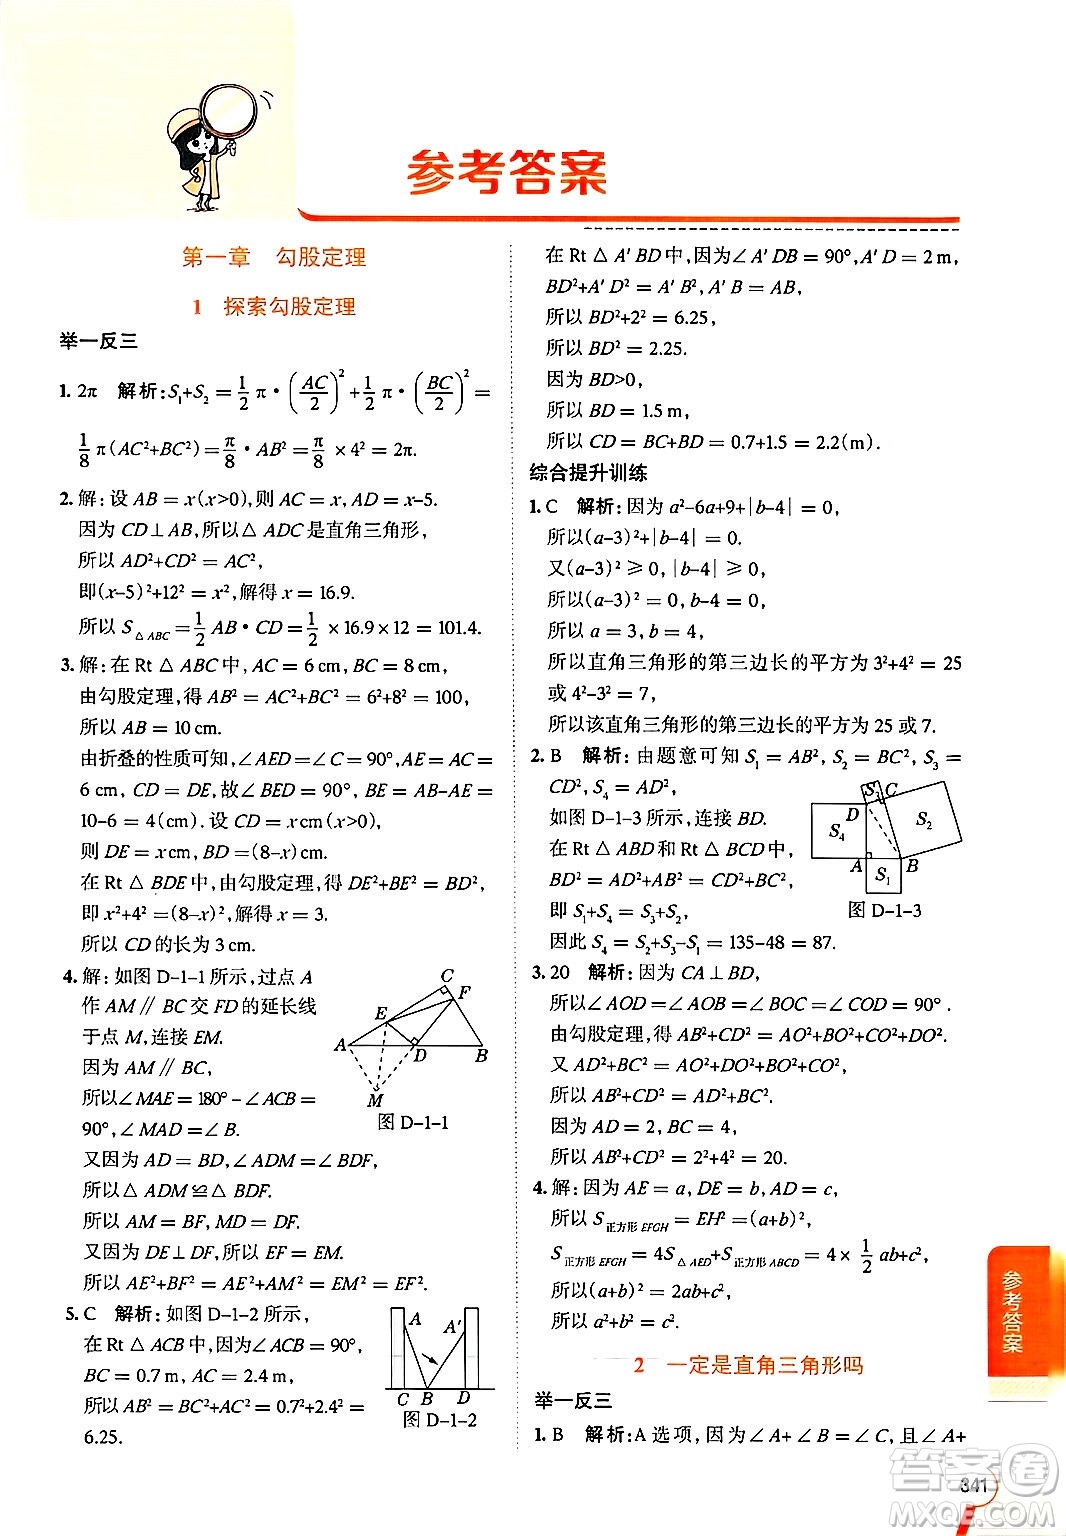 参考答案
第一章 勾股定理
1 探索勾股定理
举一反三
1. 2π 解析:S₁+S₂ = 1/2 π·(AC/2)²+1/2 π·(BC/2)² =
1/8 π(AC²+BC²) = π/8 ·AB² = π/8 ×4² = 2π.
2. 解:设 AB = x(x>0),则 AC = x, AD = x-5.
因为 CD⊥AB,所以△ADC是直角三角形,
所以 AD²+CD² = AC²,
即(x-5)²+12² = x²,解得 x = 16.9.
所以 S△ABC = 1/2 AB·CD = 1/2 ×16.9×12 = 101.4.
3. 解:在 Rt△ABC中, AC = 6 cm, BC = 8 cm,
由勾股定理,得 AB² = AC²+BC² = 6²+8² = 100,
所以 AB = 10 cm.
由折叠的性质可知,∠AED=∠C = 90°, AE = AC =
6 cm, CD = DE,故∠BED = 90°, BE = AB-AE =
10-6 = 4(cm). 设 CD = x cm(x>0),
则 DE = x cm, BD = (8-x)cm.
在 Rt△BDE中,由勾股定理,得 DE²+BE² = BD²,
即 x²+4² = (8-x)²,解得 x = 3.
所以 CD 的长为 3 cm.
4. 解:如图 D-1-1 所示,过点 A
作 AM∥BC交 FD的延长线
于点 M,连接 EM.
因为 AM∥BC,
所以∠MAE = 180°-∠ACB =
90°,∠MAD =∠B.
又因为 AD = BD,∠ADM =∠BDF,
所以△ADM≌△BDF.
所以 AM = BF, MD = DF.
又因为 DE⊥DF,所以 EF = EM.
所以 AE²+BF² = AE²+AM² = EM² = EF².
C
F
E
A
D
B
M
图 D-1-1
5. C 解析:如图 D-1-2 所示,
在 Rt△ACB中,∠ACB = 90°,
BC = 0.7 m, AC = 2.4 m,
所以 AB² = BC²+AC² = 0.7²+2.4² =
6.25.
A
A′
C B D
图 D-1-2
在 Rt△A′BD中,因为∠A′DB = 90°, A′D = 2 m,
BD²+A′D² = A′B², A′B = AB,
所以 BD²+2² = 6.25,
所以 BD² = 2.25.
因为 BD>0,
所以 BD = 1.5 m,
所以 CD = BC+BD = 0.7+1.5 = 2.2(m).
综合提升训练
1. C 解析:因为 a²-6a+9+|b-4| = 0,
所以(a-3)²+|b-4| = 0.
又(a-3)²≥0,|b-4|≥0,
所以(a-3)² = 0, b-4 = 0,
所以 a = 3, b = 4,
所以直角三角形的第三边长的平方为 3²+4² = 25
或 4²-3² = 7,
所以该直角三角形的第三边长的平方为 25 或 7.
2. B 解析:由题意可知 S₁ = AB², S₂ = BC², S₃ =
CD², S₄ = AD²,
如图 D-1-3 所示,连接 BD.
在 Rt△ABD 和 Rt△BCD 中,
BD² = AD²+AB² = CD²+BC²,
即 S₁+S₄ = S₃+S₂,
因此 S₄ = S₂+S₃-S₁ = 135-48 = 87.
S₃
C
D
S₂
S₄
A
B
S₁
图 D-1-3
3. 20 解析:因为 CA⊥BD,
所以∠AOD =∠AOB =∠BOC =∠COD = 90°.
由勾股定理,得 AB²+CD² = AO²+BO²+CO²+DO².
又 AD²+BC² = AO²+DO²+BO²+CO²,
所以 AB²+CD² = AD²+BC².
因为 AD = 2, BC = 4,
所以 AB²+CD² = 2²+4² = 20.
4. 解:因为 AE = a, DE = b, AD = c,
所以 S正方形EFGH = EH² = (a+b)²,
S正方形EFGH = 4S△AED+S正方形ABCD = 4× 1/2 ab+c²,
所以(a+b)² = 2ab+c²,
所以 a²+b² = c².
2 一定是直角三角形吗
举一反三
1. B 解析:A 选项,因为∠A+∠B =∠C,且∠A+
参考答案
341
答案圈
MXQE.COM